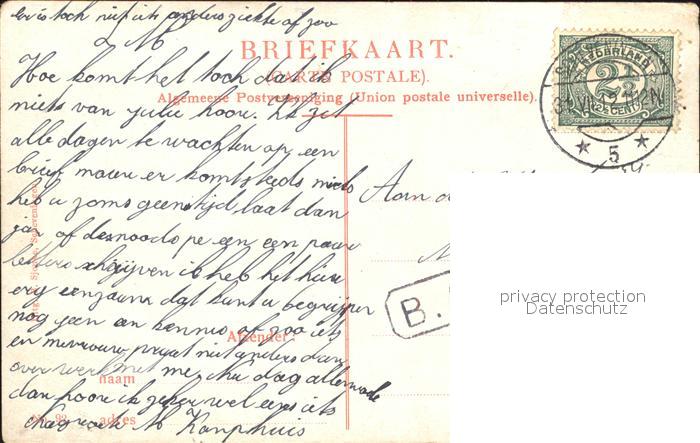 er is toch niet iets anders ziekte of zoo
M
BRIEFKAART.
(CARTE POSTALE).
Algemeene Postvereeniging (Union postale universelle).
NEDERLAND
2½
CENT
5
Hoe komt het toch dat ik
niets van julie hoor. Ik zit
alle dagen te wachten op een
brief maar er komt steeds niets
heb u zoms geen tijd laat dan
jan of desnoods een paar
letters schrijven ik heb het hier
erg eenzaam dat kunt u begrijpen
nog geen en kennis of zoo iets
en mevrouw praat niet anders dan
over werk met me, nu dag allemaal
dan hoor ik zeker wel eens iets
M Kamphuis
Aan
B.
Afzender:
naam
adres
privacy protection
Datenschutz